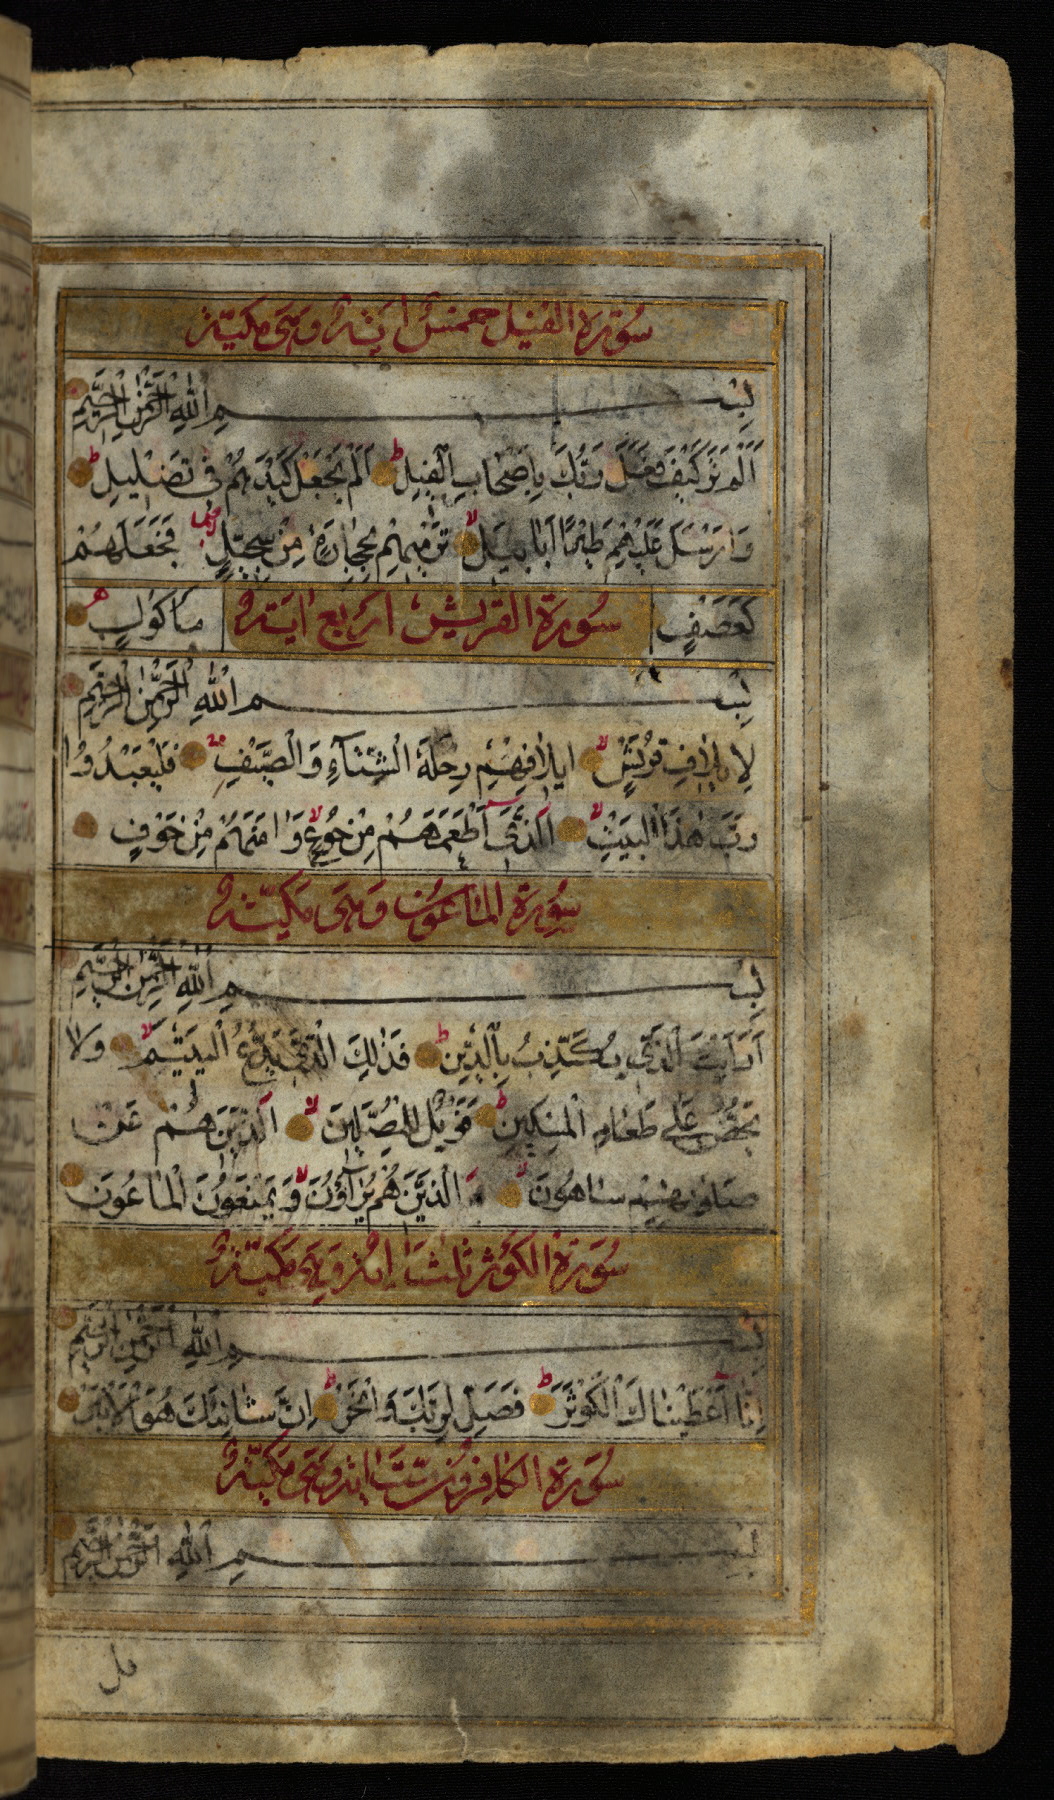 سورة الفيل خمس اية وهى مكية
بسم الله الرحمن الرحيم
اَلَمْ تَرَ كَيْفَ فَعَلَ رَبُّكَ بِاَصْحَابِ الْفِيلِ ط اَلَمْ يَجْعَلْ كَيْدَهُمْ فِى تَضْلِيلٍ ط
وَاَرْسَلَ عَلَيْهِمْ طَيْرًا اَبَابِيلَ لا تَرْمِيهِمْ بِحِجَارَةٍ مِنْ سِجِّيلٍ فَجَعَلَهُمْ
كَعَصْفٍ سورة القريش اربع اية مَاْكُولٍ
بسم الله الرحمن الرحيم
لِاِيلَافِ قُرَيْشٍ لا اِيلَافِهِمْ رِحْلَةَ الشِّتَآءِ وَالصَّيْفِ فَلْيَعْبُدُوا
رَبَّ هٰذَا الْبَيْتِ لا اَلَّذِىٓ اَطْعَمَهُمْ مِنْ جُوعٍ لا وَاٰمَنَهُمْ مِنْ خَوْفٍ
سورة الماعون وهى مكية
بسم الله الرحمن الرحيم
اَرَاَيْتَ الَّذِى يُكَذِّبُ بِالدِّينِ ط فَذٰلِكَ الَّذِى يَدُعُّ الْيَتِيمَ لا وَلَا
يَحُضُّ عَلٰى طَعَامِ الْمِسْكِينِ ط فَوَيْلٌ لِلْمُصَلِّينَ لا اَلَّذِينَ هُمْ عَنْ
صَلٰوتِهِمْ سَاهُونَ لا اَلَّذِينَ هُمْ يُرَآؤُنَ لا وَيَمْنَعُونَ الْمَاعُونَ
سورة الكوثر ثلث اية وهى مكية
بسم الله الرحمن الرحيم
اِنَّا اَعْطَيْنَاكَ الْكَوْثَرَ ط فَصَلِّ لِرَبِّكَ وَانْحَرْ ط اِنَّ شَانِئَكَ هُوَ الْاَبْتَرُ
سورة الكافرون ست اية وهى مكية
بسم الله الرحمن الرحيم
قل